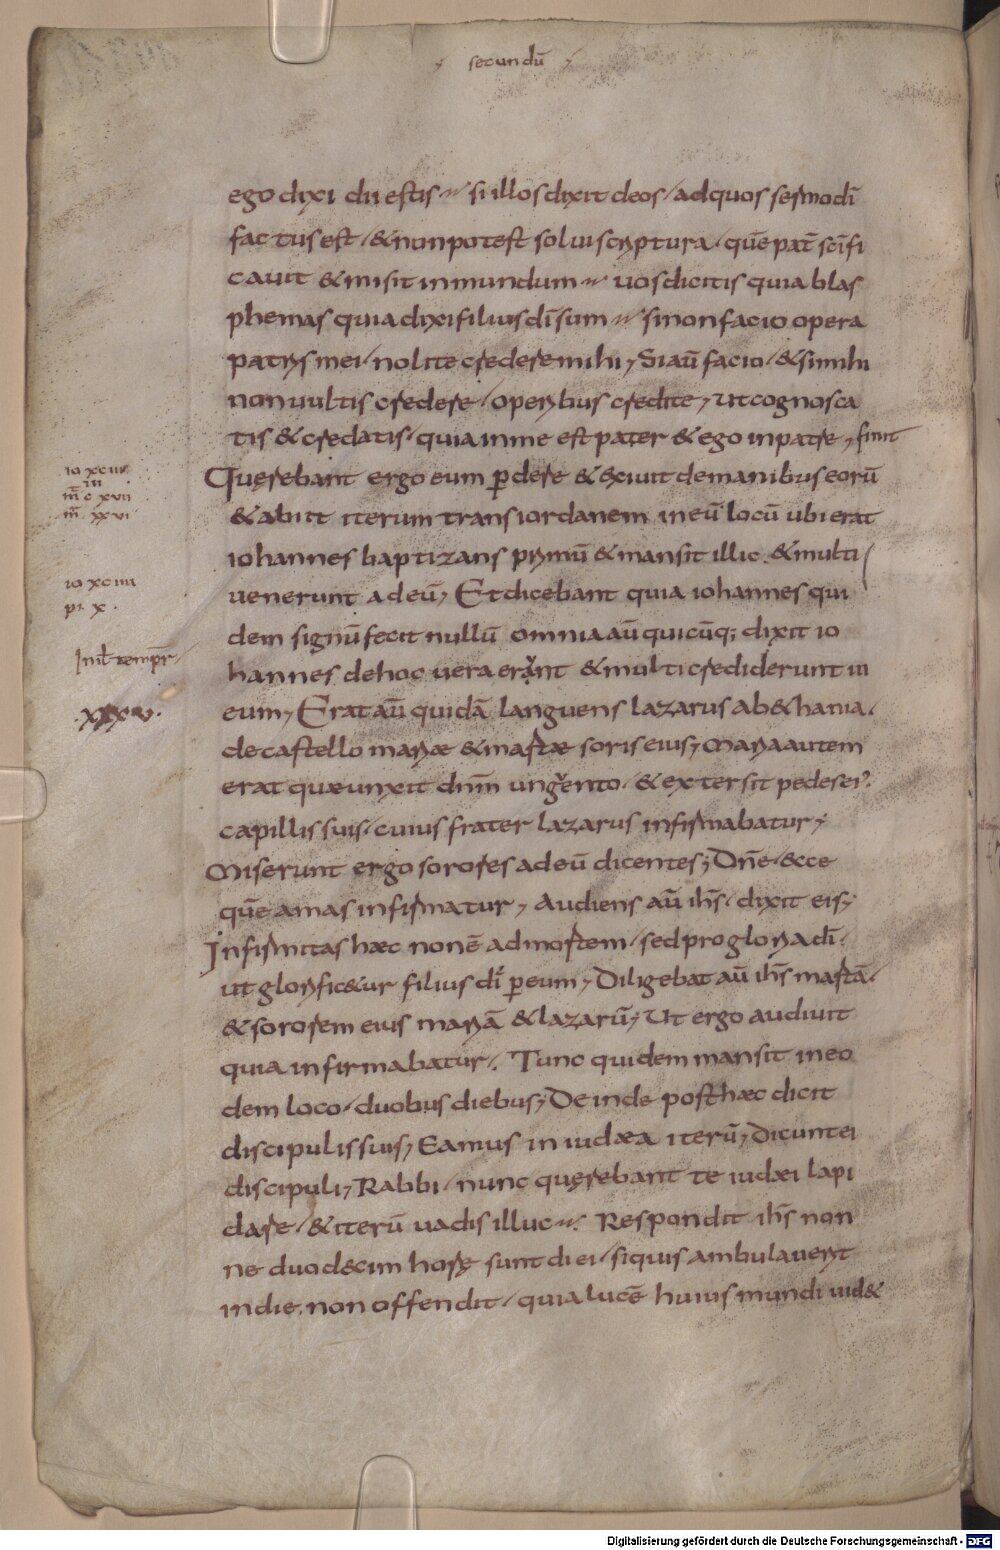 secundū
ego dixi dii estis si illos dixit deos / ad quos sermo dī
factus est / & non potest solui scriptura / quē pat̄ sc̄ifi
cauit & misit in mundum uos dicitis quia blas
phemas quia dixi filius dī sum si non facio opera
patris mei / nolite credere mihi, Si aū facio / & si mihi
non uultis credere / operibus credite, ut cognosca
tis & credatis / quia in me est pater & ego in patre, finit
Quęrebant ergo eum p̄dere & exiuit de manibus eorū
& abiit iterum trans iordanem in eū locū ubi erat
iohannes baptizans primū & mansit illic. & multi
uenerunt ad eū, Et dicebant quia iohannes qui
dem signū fecit nullū omnia aū quicūq; dixit io
hannes de hoc uera erant & multi crediderunt in
eum, Erat aū quidā languens lazarus a bethania.
de castello mariæ & martæ soris eius, maria autem
erat quæ unxit dnm̄ ungento. & extersit pedes ei'
capillis suis / cuius frater lazarus infirmabatur,
Miserunt ergo sorores ad eū dicentes; Dn̄e. ecce
quē amas infirmatur, Audiens aū ih̄s. dixit eis;
Infirmitas hæc non ē ad mortem / sed pro gloria dī.
ut glorific&ur filius dī p̄ eum, Diligebat aū ih̄s martā.
& sororem eius mariā & lazarū, Ut ergo audiuit
quia infirmabatur. Tunc quidem mansit in eo
dem loco / duobus diebus; Deinde post hæc dicit
discipulis suis, Eamus in iudæa iterū, Dicunt ei
discipuli, Rabbi / nunc quęrebant te iudæi lapi
dare / & iterū uadis illuc Respondit ih̄s non
ne duodecim horę sunt diei / si quis ambulauerit
in die. non offendit / quia lucē huius mundi uid&
io xciii
in
m̄ c xvii
m̄ xxvi
io xciiii
pi. x.
Digitalisierung gefördert durch die Deutsche Forschungsgemeinschaft - DFG